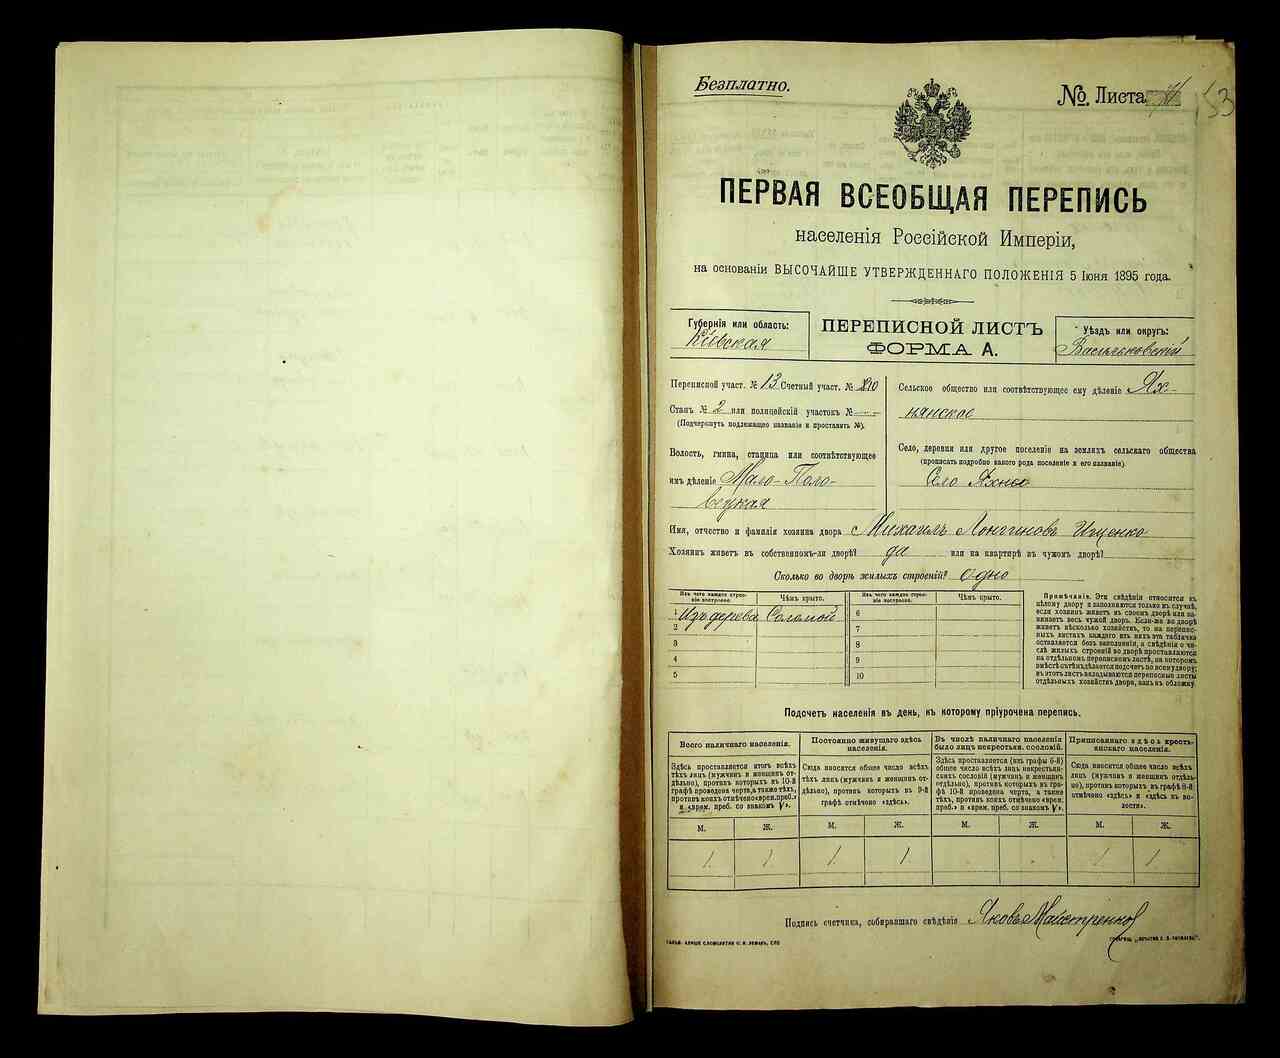 Безплатно.
№ Листа
53
ПЕРВАЯ ВСЕОБЩАЯ ПЕРЕПИСЬ
населенія Россійской Имперіи,
на основаніи ВЫСОЧАЙШЕ УТВЕРЖДЕННАГО ПОЛОЖЕНІЯ 5 Іюня 1895 года.
Губернія или область:
Кіевская
ПЕРЕПИСНОЙ ЛИСТЪ
ФОРМА А.
Уѣздъ или округъ:
Васильковскій
Переписной участ. № 13 Счетный участ. №
Станъ № 2 или полицейскій участокъ № —
(Подчеркнуть подлежащее названіе и проставить №).
Волость, гмина, станица или соотвѣтствующее
имъ дѣленіе Мало-Поло-
вецкая
Сельское общество или соотвѣтствующее ему дѣленіе Ях-
нянское
Село, деревня или другое поселеніе на земляхъ сельскаго общества
(прописать подробно какого рода поселеніе и его названіе).
Село Яхны
Имя, отчество и фамилія хозяина двора Михаилъ Лонгиновъ Ищенко
Хозяинъ живетъ въ собственномъ-ли дворѣ? да или на квартирѣ въ чужомъ дворѣ?
Сколько во дворѣ жилыхъ строеній? одно
Изъ чего каждое строе-
ніе построено.
Чѣмъ крыто.
1 Изъ дерева Соломой
2
3
4
5
Изъ чего каждое строе-
ніе построено.
Чѣмъ крыто.
6
7
8
9
10
Примѣчаніе. Эти свѣдѣнія относятся къ
цѣлому двору и заполняются только въ случаѣ,
если хозяинъ живетъ въ своемъ дворѣ или на-
нимаетъ весь чужой дворъ. Если-же во дворѣ
живетъ нѣсколько хозяйствъ, то на перепис-
ныхъ листахъ каждаго изъ нихъ эта табличка
оставляется безъ заполненія, а свѣдѣнія о чи-
слѣ жилыхъ строеній во дворѣ проставляются
на отдѣльномъ переписномъ листѣ, на которомъ
вмѣстѣ съ тѣмъ дѣлается подсчетъ по всему двору;
въ этотъ листъ вкладываются переписные листы
отдѣльныхъ хозяйствъ двора, какъ въ обложку.
Подсчетъ населенія въ день, къ которому пріурочена перепись.
Всего наличнаго населенія.
Здѣсь проставляется итогъ всѣхъ
тѣхъ лицъ (мужчинъ и женщинъ от-
дѣльно), противъ которыхъ въ 10-й
графѣ проведена черта, а также тѣхъ,
противъ коихъ отмѣчено «врем. преб.»
и «врем. преб. со знакомъ V».
Постоянно живущаго здѣсь
населенія.
Сюда вносится общее число всѣхъ
тѣхъ лицъ (мужчинъ и женщинъ от-
дѣльно), противъ которыхъ въ 9-й
графѣ отмѣчено «здѣсь».
Въ числѣ наличнаго населенія
было лицъ некрестьян. сословій.
Здѣсь проставляется (изъ графы 6-й)
общее число всѣхъ лицъ некрестьян-
скихъ сословій (мужчинъ и женщинъ
отдѣльно), противъ которыхъ въ гра-
фѣ 10-й проведена черта, а также
тѣхъ, противъ коихъ отмѣчено «врем.
преб.» и «врем. преб. со знакомъ V».
Приписаннаго здѣсь кресть-
янскаго населенія.
Сюда вносится общее число всѣхъ
лицъ (мужчинъ и женщинъ отдѣль-
но), противъ которыхъ въ графѣ 8-й
отмѣчено «здѣсь» и «здѣсь въ во-
лости».
М. Ж. М. Ж. М. Ж. М. Ж.
1 1 1 1 1 1
Подпись счетчика, собиравшаго свѣдѣнія Яковъ Майстренко